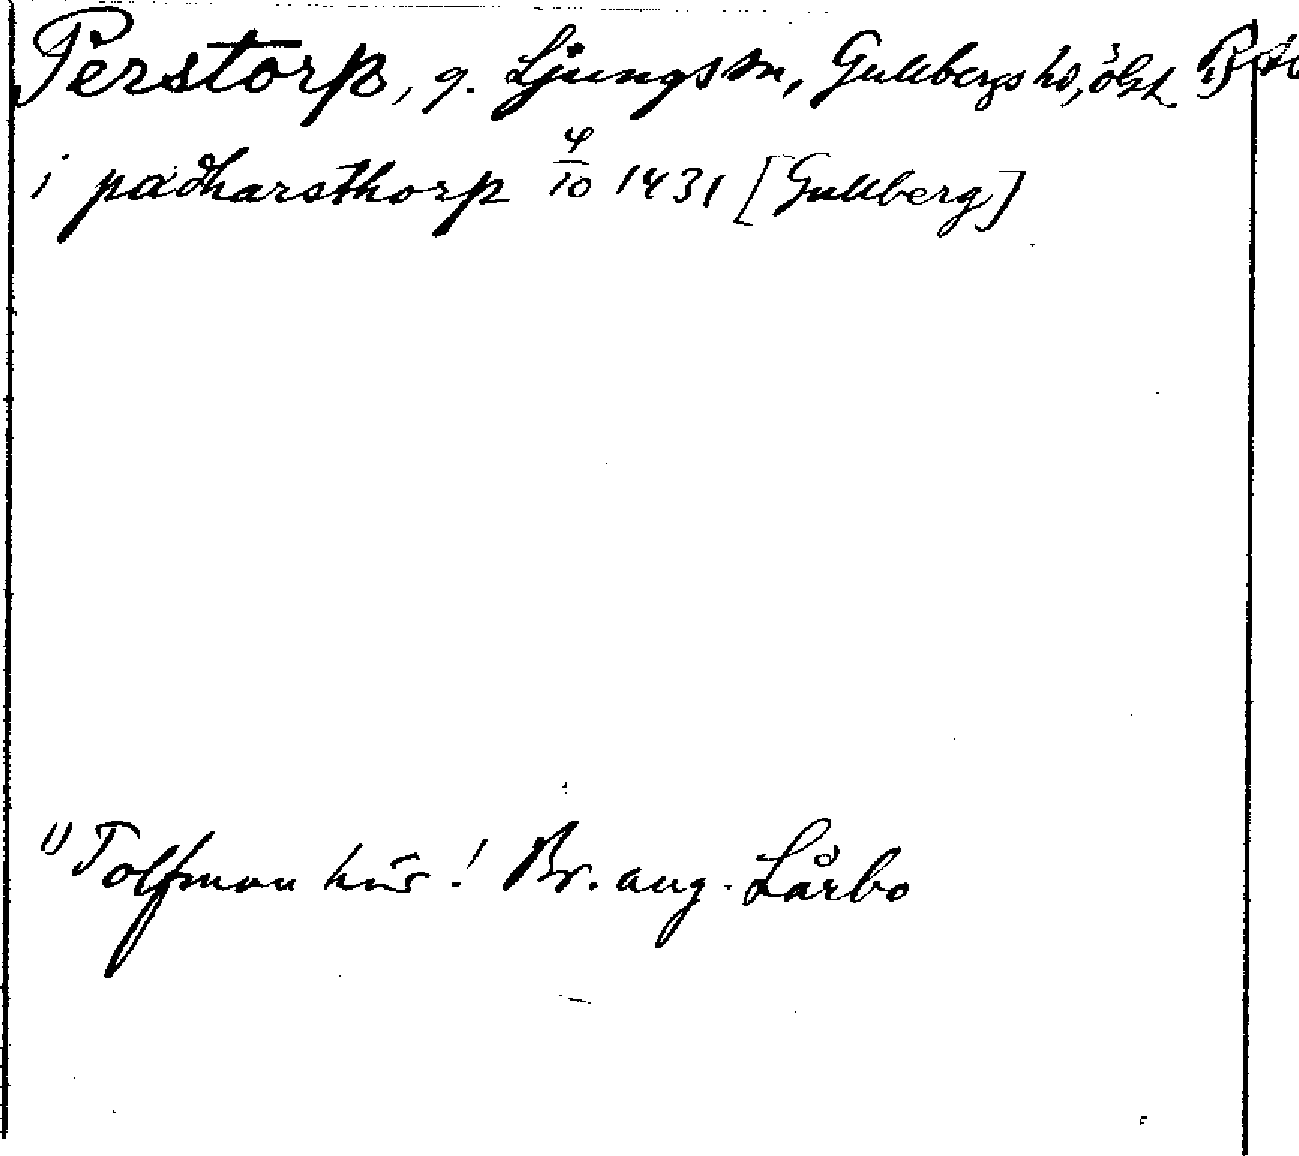 Perstorp, g. Ljungs sn, Gullbergs hd, ögt.
i paðharsthorp 4/10 1431 [Gullberg]
1) Tolfman här! Br. ang. Lårbo